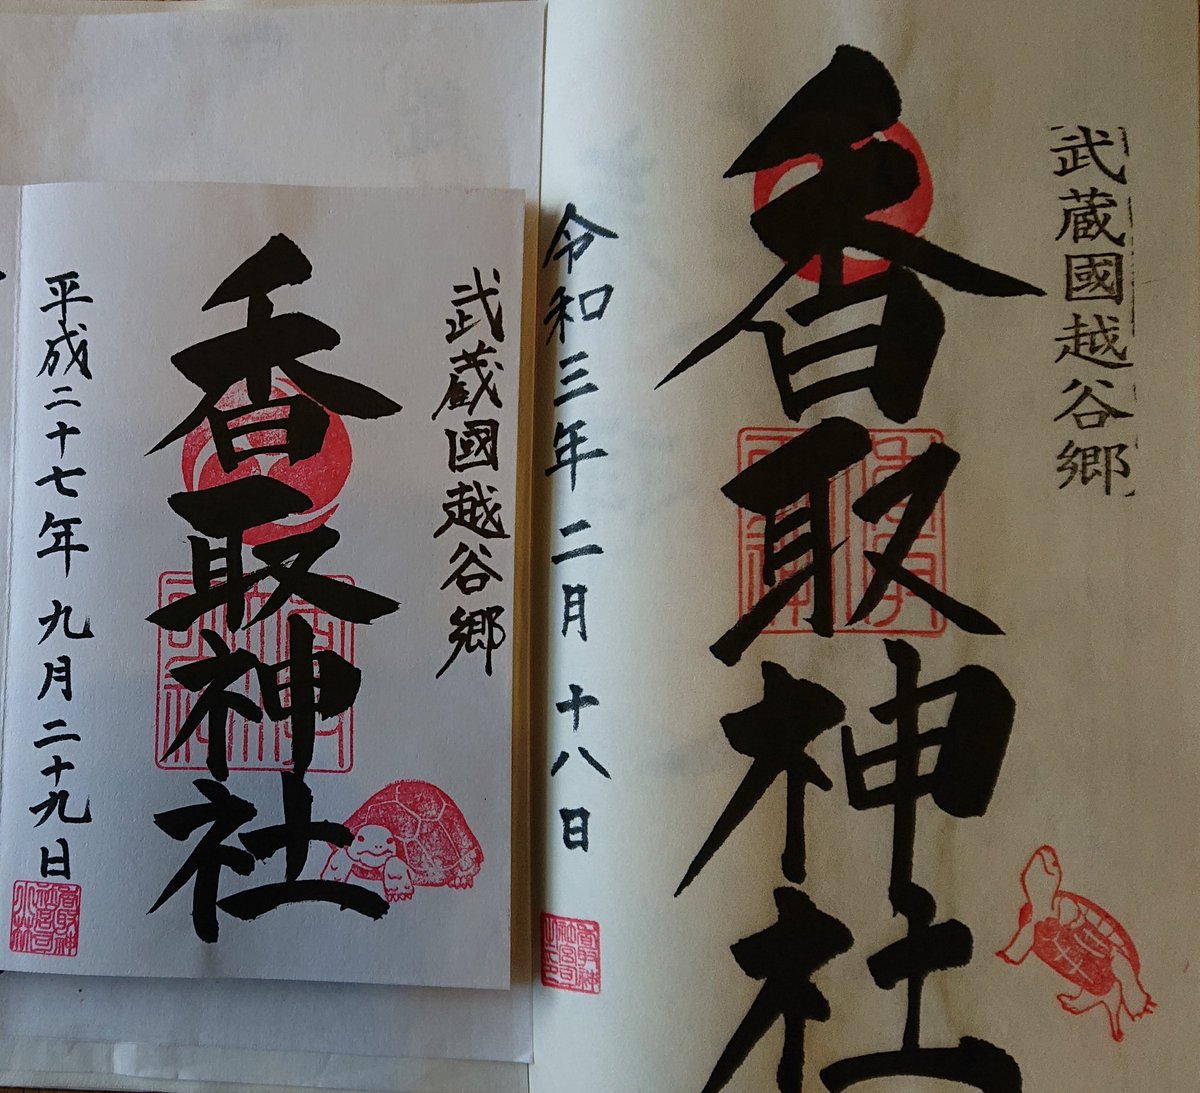 武蔵國越谷郷
香取神社
令和三年二月十八日
武蔵國越谷郷
香取神社
平成二十七年九月二十九日